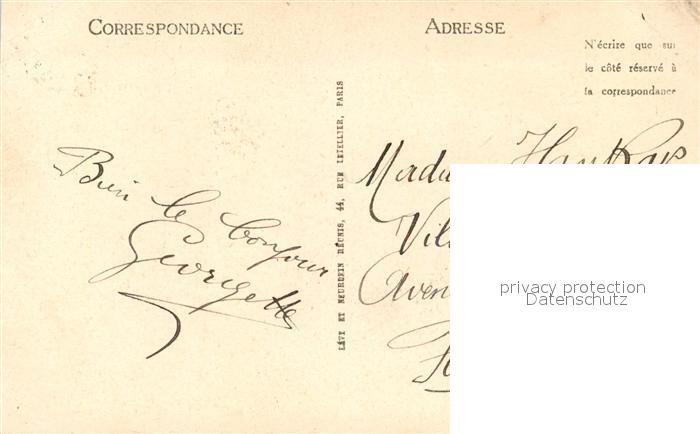 CORRESPONDANCE
ADRESSE
N'écrire que sur
le côté réservé à
la correspondance
LÉVY ET NEURDEIN RÉUNIS, 44, RUE LETELLIER, PARIS
Bien le bonjour
Georgette
Mada
Vil
Aven
privacy protection
Datenschutz